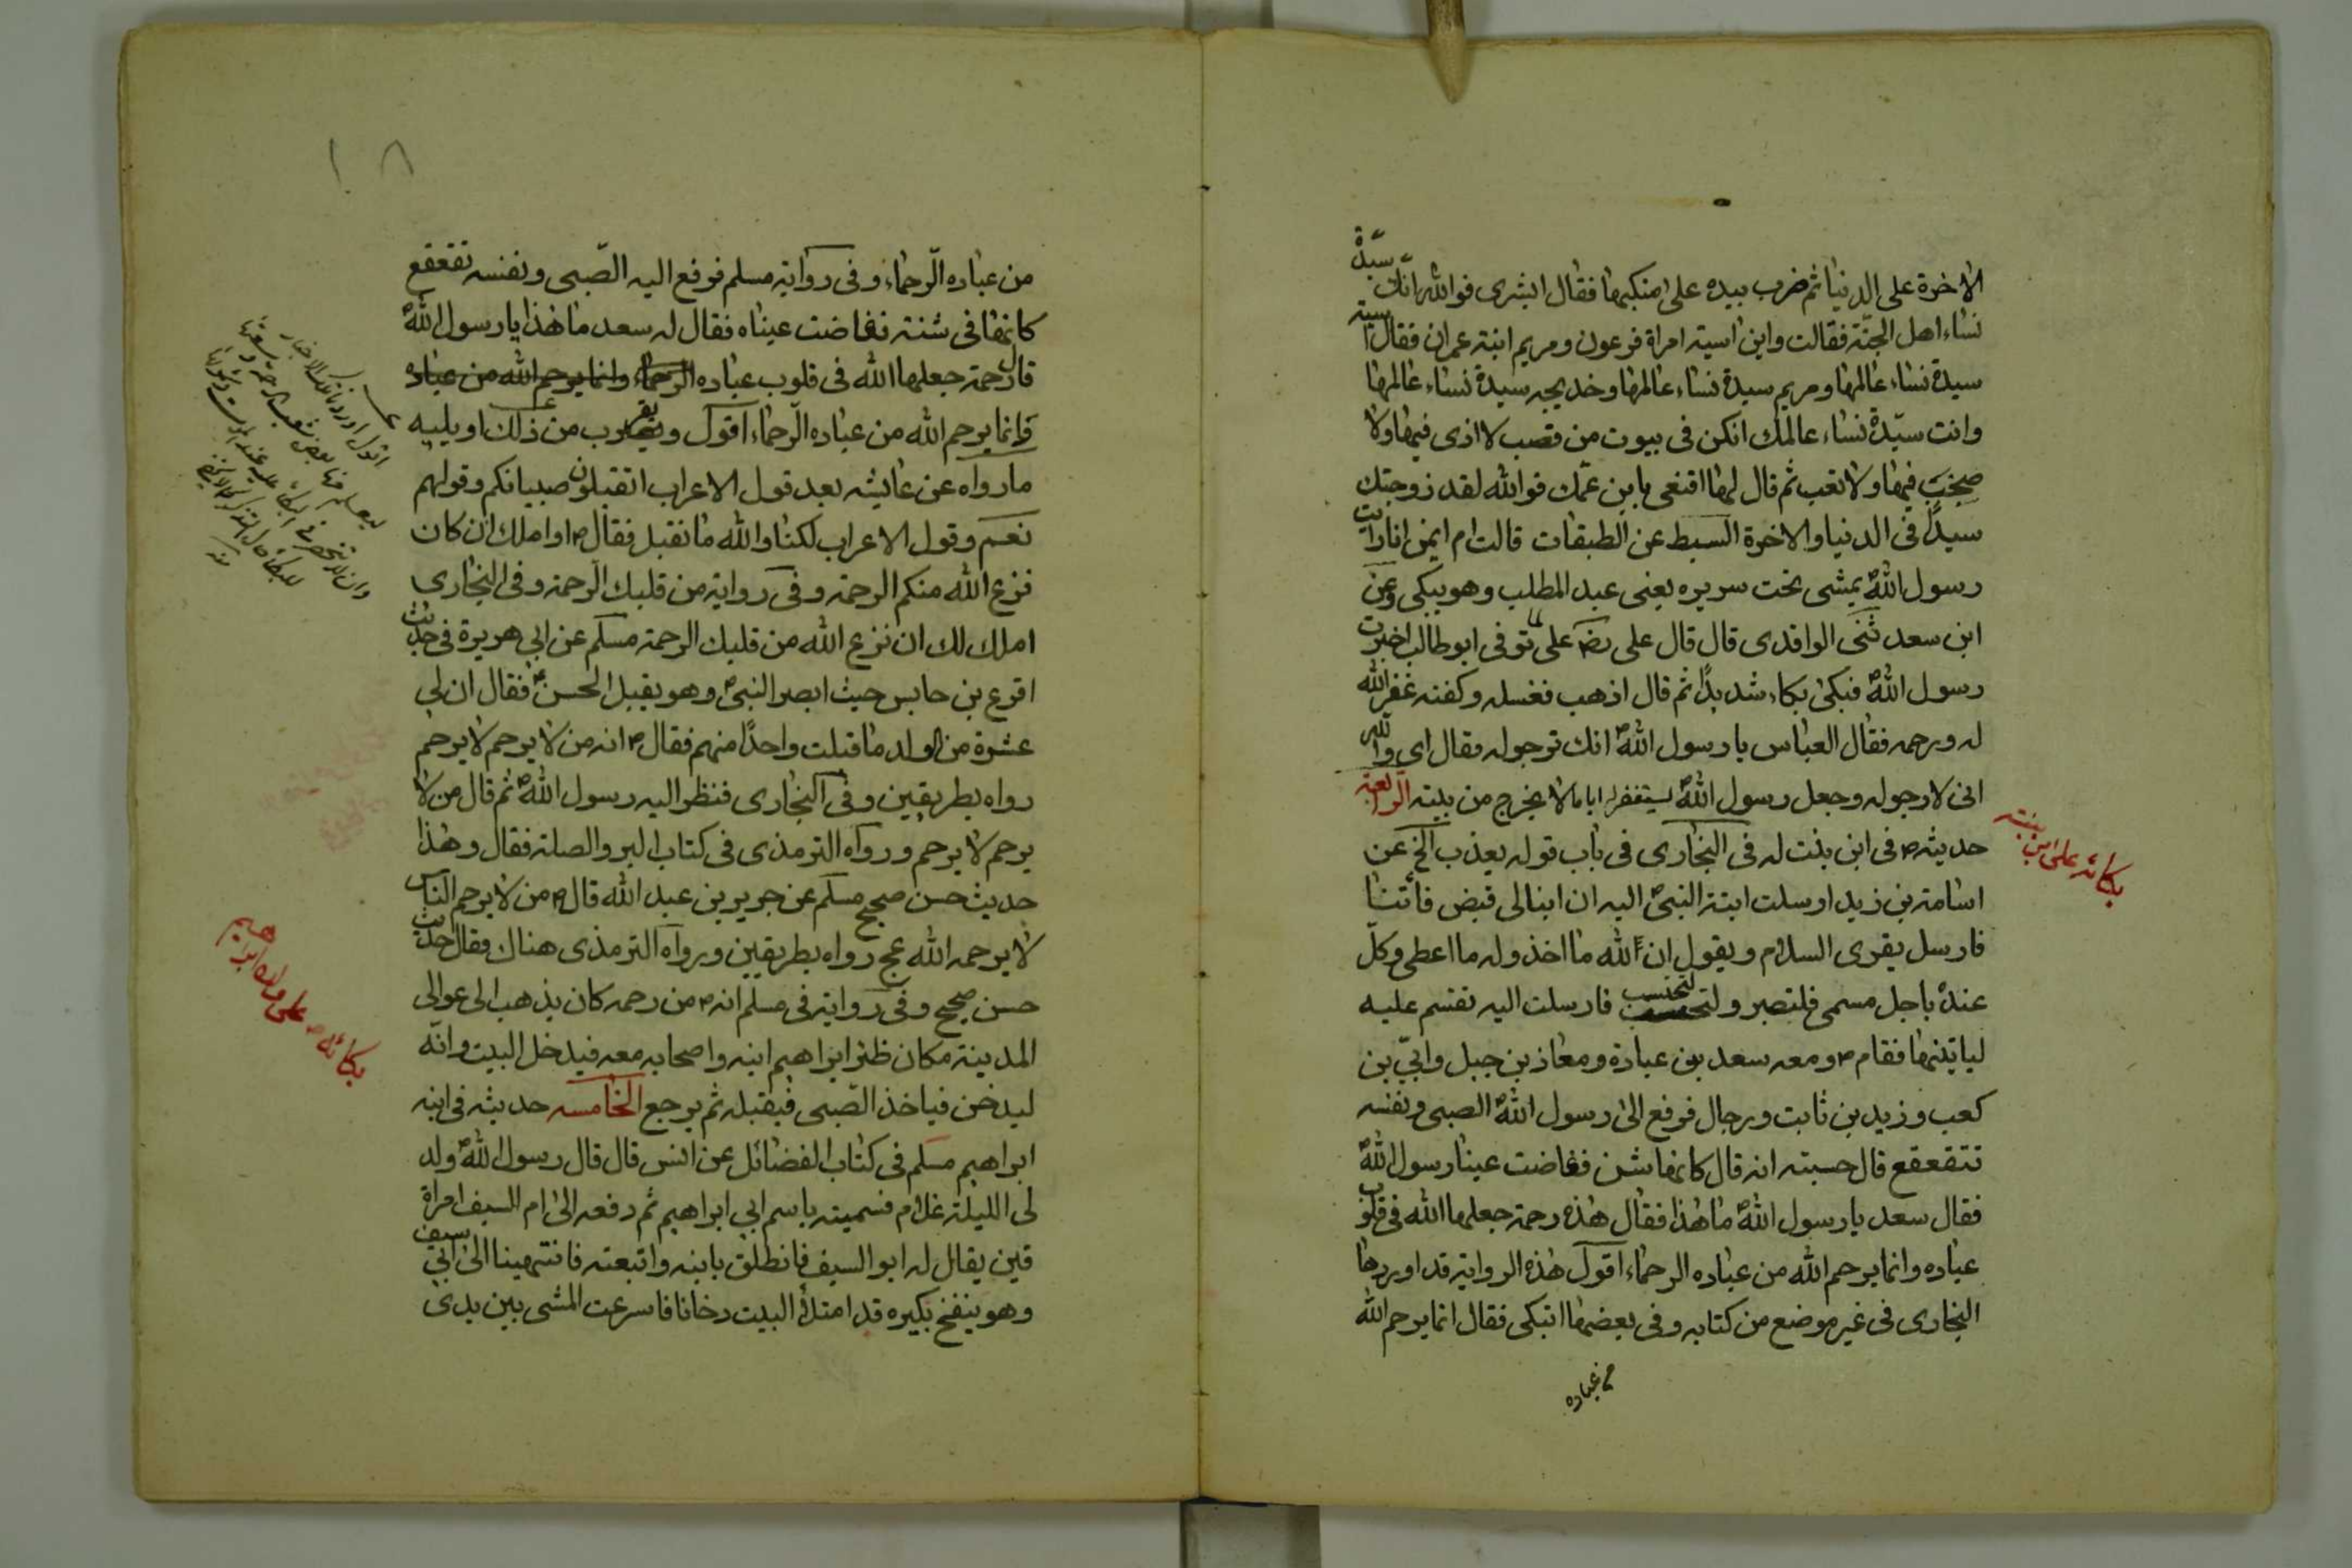 الاخرة على الدنيا ثم ضرب بيده على منكبها فقال ابشرى فوالله انك سيدة
نساء اهل الجنة فقالت واين اسية امراة فرعون ومريم ابنة عمران فقال اسية
سيدة نساء عالمها ومريم سيدة نساء عالمها وخديجه سيدة نساء عالمها
وانت سيّدة نساء عالمك انكن فى بيوت من قصب لا اذى فيها ولا
صخب فيها ولا تعب ثم قال لها اقنعى بابن عمّك فوالله لقد زوجتك
سيدًا فى الدنيا والاخرة السبط عن الطبقات قالت ام ايمن انا رايت
رسول الله يمشى تحت سريره يعنى عبد المطلب وهو يبكى وعن
ابن سعد ثنى الواقدى قال قال على توفى ابو طالب اخبرت
رسول الله فبكى بكاء شديدًا ثم قال اذهب فغسله وكفنه غفر الله
له ورحمه فقال العباس يا رسول الله انك ترجو له فقال اى والله
انى لارجو له وجعل رسول الله يستغفر له اياما لا يخرج من بيته الرابعة
حديثه فى ابن بنت له فى البخارى فى باب قوله يعذب الخ عن
اسامة بن زيد ارسلت ابنة النبى اليه ان ابنا لى قبض فأتنا
فارسل يقرى السلام ويقول ان لله ما اخذ وله ما اعطى وكلّ
عنده باجل مسمى فلتصبر ولتحتسب فارسلت اليه تقسم عليه
لياتينها فقام ومعه سعد بن عبادة ومعاذ بن جبل وابيّ بن
كعب وزيد بن ثابت ورجال فرفع الى رسول الله الصبى ونفسه
تتقعقع قال حسبته انه قال كانها شن ففاضت عينا رسول الله
فقال سعد يا رسول الله ما هذا فقال هذه رحمة جعلها الله فى قلوب
عباده وانما يرحم الله من عباده الرحماء اقول هذه الرواية قد اوردها
البخارى فى غير موضع من كتابه وفى بعضها اتبكى فقال انما يرحم الله
من عباده
بكائه على ابن بنته
١٨
من عباده الرّحماء وفى رواية مسلم فرفع اليه الصّبى ونفسه تقعقع
كانها فى شنة ففاضت عيناه فقال له سعد ما هذا يا رسول الله
قال رحمة جعلها الله فى قلوب عباده الرحماء وانما يرحم الله من عباده
وانما يرحم الله من عباده الرّحماء اقول ويقرب من ذلك او يليه
ما رواه عن عايشه بعد قول الاعراب اتقبلون صبيانكم وقولهم
نعم وقول الاعراب لكنا والله ما نقبل فقال او املك ان كان
نزع الله منكم الرحمة وفى رواية من قلبك الرّحمة وفى البخارى
املك لك ان نزع الله من قلبك الرحمة مسلم عن ابي هريرة فى حديث
اقرع بن حابس حيث ابصر النبى وهو يقبل الحسن فقال ان لي
عشرة من الولد ما قبلت واحدًا منهم فقال انه من لا يرحم لا يرحم
رواه بطريقين وفى البخارى فنظر اليه رسول الله ثم قال من لا
يرحم لا يرحم ورواه الترمذى فى كتاب البر والصلة فقال وهذا
حديث حسن صحيح مسلم عن جرير بن عبد الله قال من لا يرحم الناس
لا يرحمه الله عج رواه بطريقين ورواه الترمذى هناك فقال حديث
حسن صحيح وفى رواية فى مسلم انه من رحمه كان يذهب الى عوالى
المدينة مكان ظئر ابراهيم ابنه واصحابه معه فيدخل البيت وانّه
ليدخن فياخذ الصّبى فيقبله ثم يرجع الخامسه حديثه فى ابنه
ابراهيم مسلم فى كتاب الفضائل عن انس قال قال رسول الله ولد
لى الليلة غلام فسميته باسم ابي ابراهيم ثم دفعه الى ام السيف امراة
قين يقال له ابو السيف فانطلق بابنه واتبعته فانتهينا الى ابي سيف
وهو ينفخ بكيره قد امتلأ البيت دخانا فاسرعت المشى بين يدى
بكائه على ولده ابراهيم